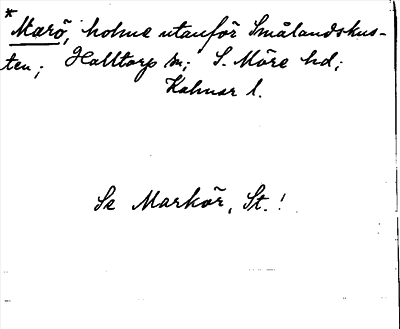 *
Marö, holme utanför Smålandskus-
ten; Halltorp sn; S. Möre hd;
Kalmar l.
Se Markör, St.!